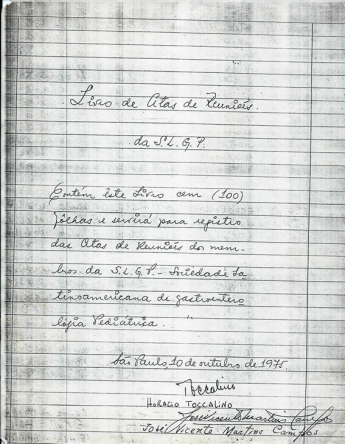 Livro de Atas de Reuniões.
da S.L.G.P.
Contém este Livro cem (100)
fôlhas e servirá para registro
das Atas de Reuniões dos mem-
bros da S.L.G.P. - Sociedade La
tinoamericana de gastroentero
logia Pediátrica. "
São Paulo, 10 de outubro de 1975.
Toccalino
HORACIO TOCCALINO
José Vicente Martins Campos
José Vicente Martins Campos